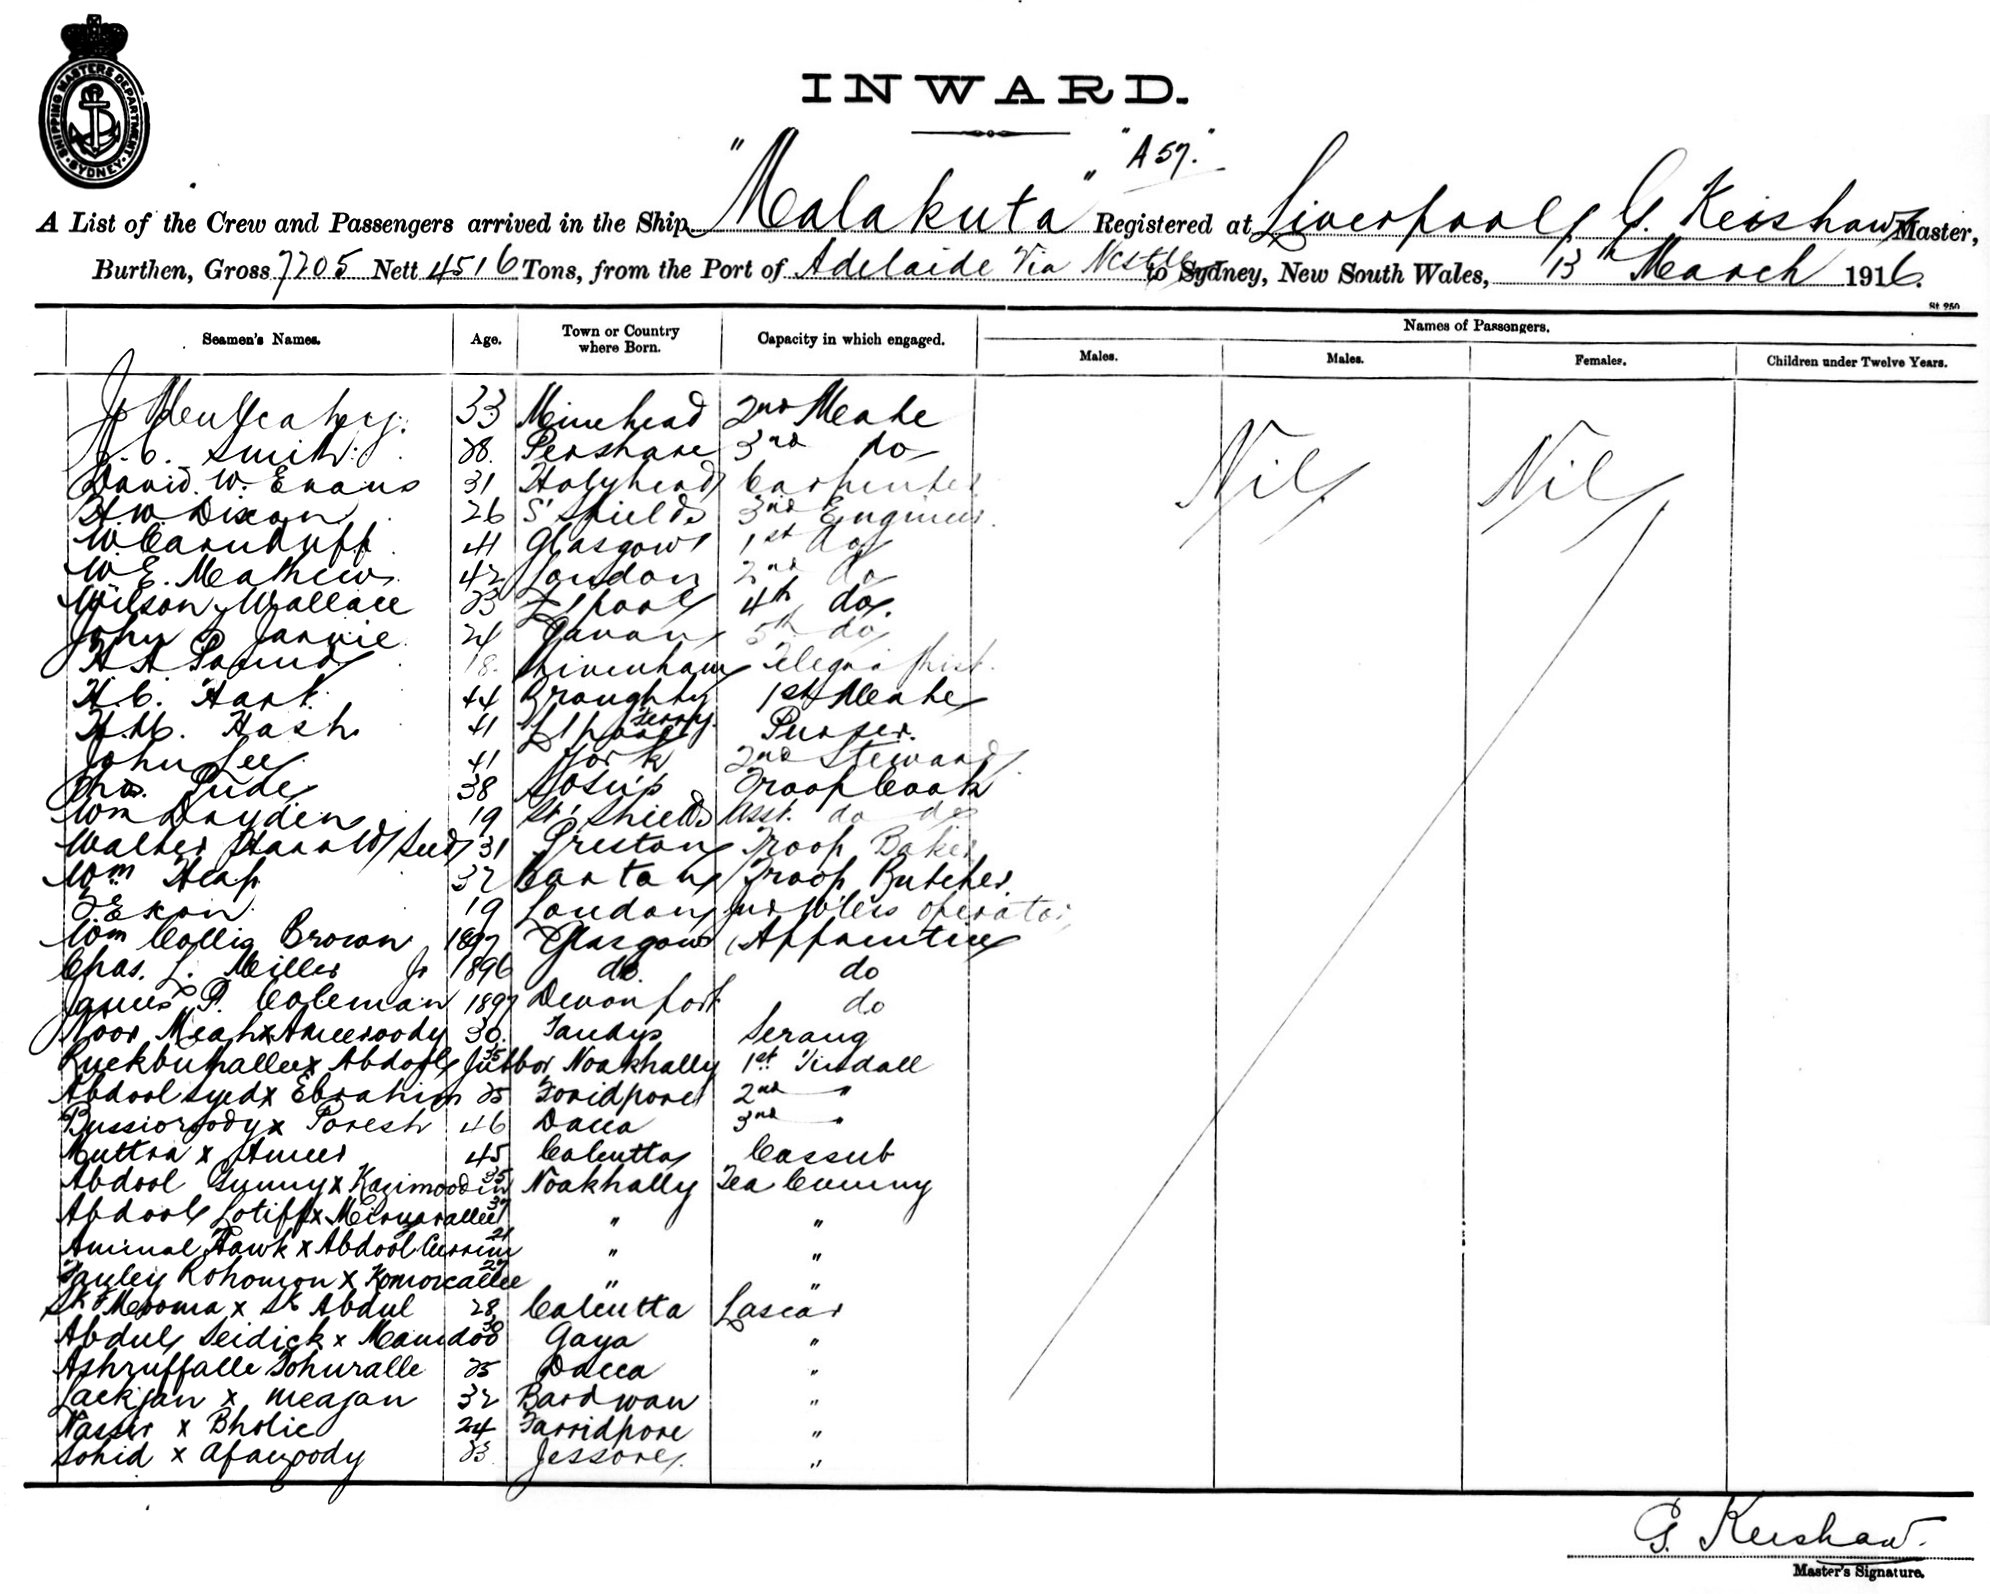 SHIPPING MASTERS DEPARTMENT
SYDNEY
INWARD.
"Malakuta" "A57."
A List of the Crew and Passengers arrived in the Ship "Malakuta" Registered at Liverpool, G. Kershaw Master,
Burthen, Gross 7205 Nett 4516 Tons, from the Port of Adelaide Via Ncstle to Sydney, New South Wales, 13th March 1916.
Seamen's Names. Age. Town or Country where Born. Capacity in which engaged. Names of Passengers.
Males. Males. Females. Children under Twelve Years.
33 Minehead 2nd Mate
Smith 28. Pershore 3rd do Nil Nil
David W. Evans 31 Holyhead Carpenter
H.W. Dixon 26 S' Shields 3rd Engineer
W. Carnduff 41 Glasgow 1st do
W.E. Mathews 42 London 2nd do
Wilson Wallace 23 L'pool 4th do.
John Jarvie 24 Govan 5th do
18. Shrivenham Telegraphist.
H.C. Hart 44 Broughty Ferry. 1st Mate
Hash 41 L'pool Purser.
John Lee 41 York 2nd Steward
Thos. Pude 38 Troop Cook
Wm Dryden 19 St. Shields Asst. do do
Walter Harold 31 Preston Troop Baker
Wm Heap 32 Troop Butcher.
Ekon 19 London Jnr W'less operator
Wm Collis Brown 1897 Glasgow Apprentice
Chas. L. Miller Jr 1896 do. do
James P. Coleman 1897 Devonport do
Noor Meah x Ameeroody 30. Serang
Ruckbutallee x Abdool Jubbor 35 Noakhally 1st Tindall
Abdool Syed x Ebrahim 25 Foridpore 2nd "
Bussioroody x Poresh 46 Dacca 3rd "
Muttra x Ameer 45 Calcutta Cassub
Abdool Gunny x Kazimoodin 35 Noakhally Sea Cunny
Abdool Lotiff x 37 " "
Aminal Hawk x Abdool Currim 21 " "
Fauley Rohomon x Komorcallee 27 " "
Sk Mooma x Sk Abdul 28 Calcutta Lascar
Abdul Seidick x Mamdoo 30 Gaya "
Ashruffalle Tohuralle 25 Dacca "
Jackjan x Meajan 32 Bardwan "
Nassir x Bholie 24 Farridpore "
Sohid x Afazoody 23 Jessore "
G. Kershaw.
Master's Signature.